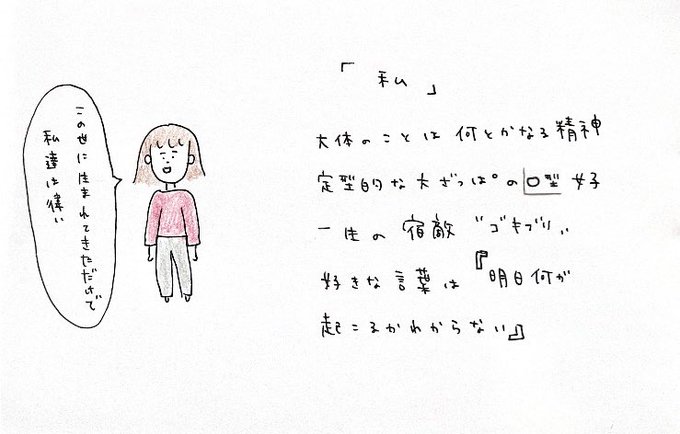 「私」
大体のことは何とかなる精神
定型的な大ざっぱの O型 女子
一生の宿敵 "ゴキブリ"
好きな言葉は『明日何が
起こるかわからない』
この世に生まれてきただけで
私達は偉い